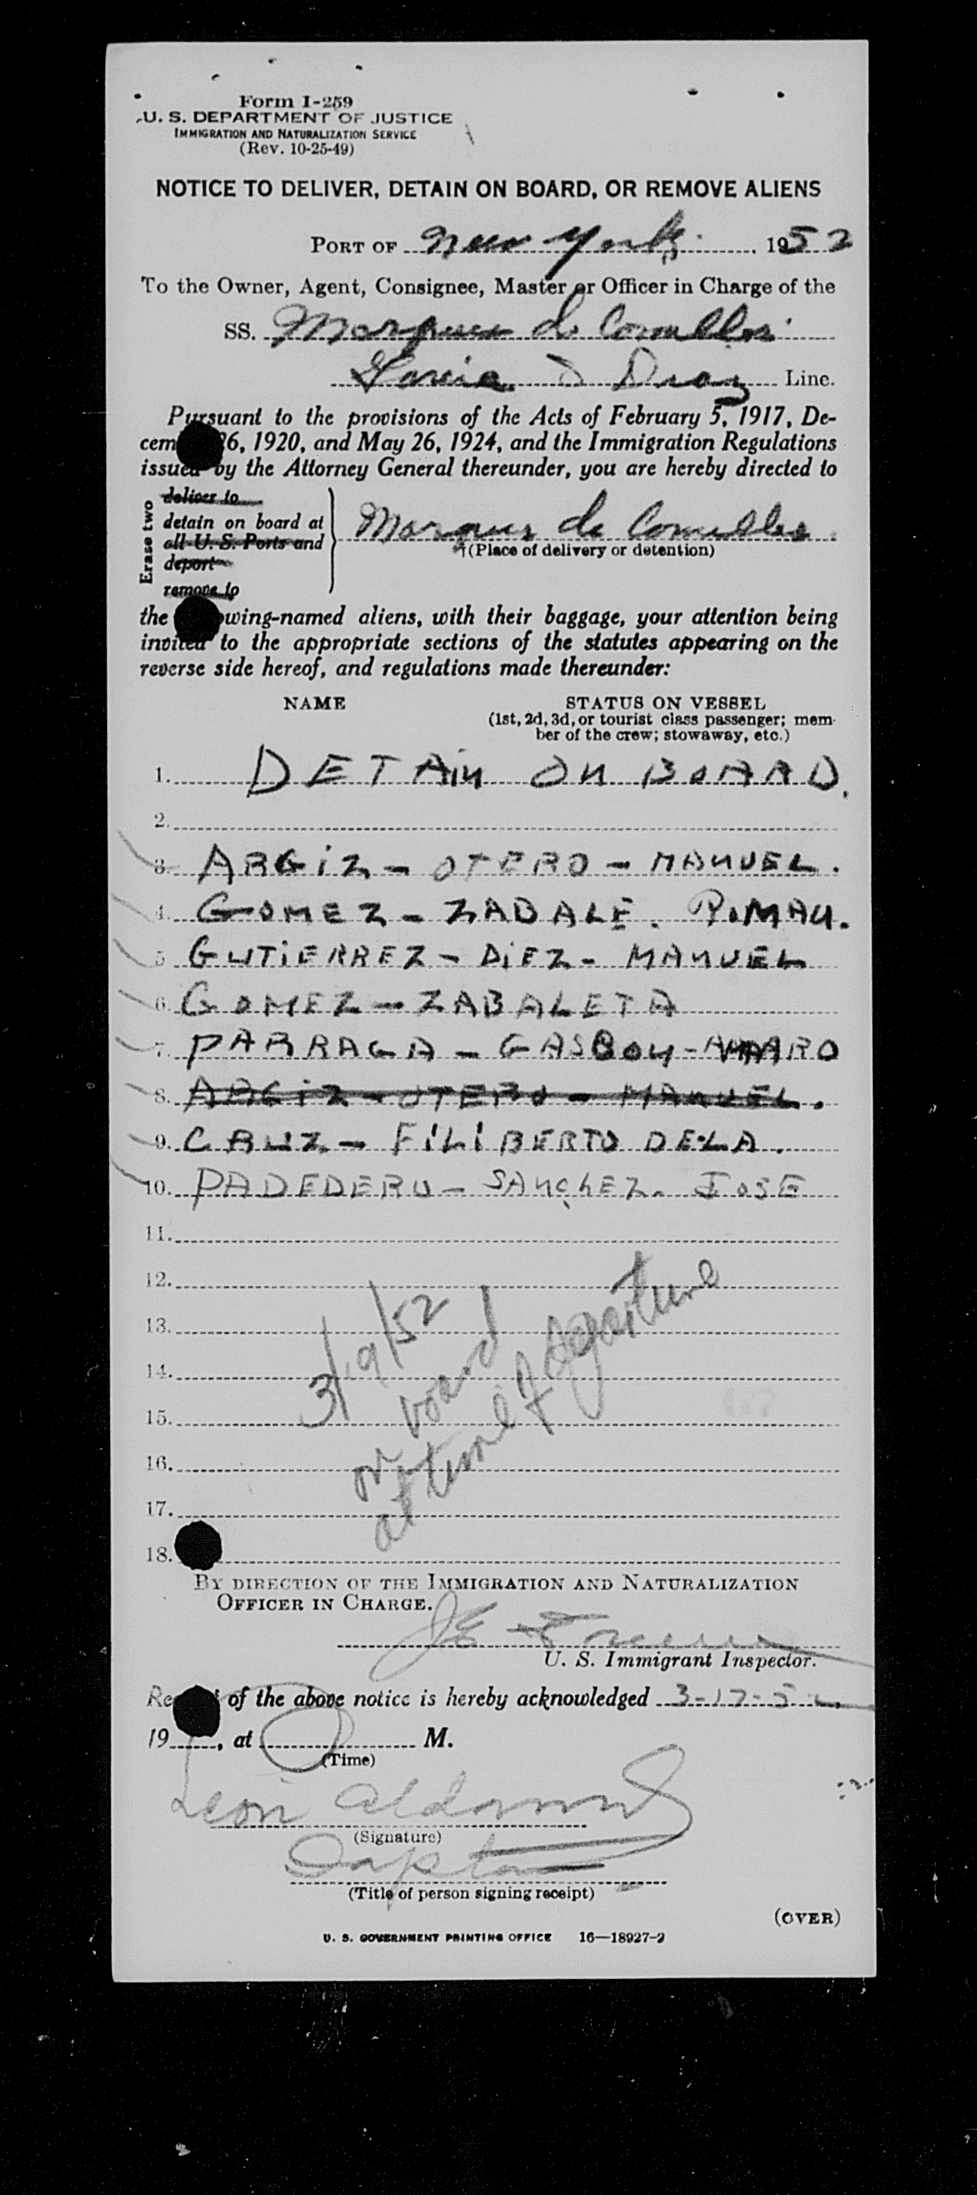 Form I-259
U. S. DEPARTMENT OF JUSTICE
IMMIGRATION AND NATURALIZATION SERVICE
(Rev. 10-25-49)
NOTICE TO DELIVER, DETAIN ON BOARD, OR REMOVE ALIENS
PORT OF New York. , 1952
To the Owner, Agent, Consignee, Master or Officer in Charge of the
SS. Marques de Comillas
Garcia & Diaz Line.
Pursuant to the provisions of the Acts of February 5, 1917, De-
cem 26, 1920, and May 26, 1924, and the Immigration Regulations
issued by the Attorney General thereunder, you are hereby directed to
Erase two
deliver to
detain on board at
all U. S. Ports and
deport
remove to
Marques de Comillas
(Place of delivery or detention)
the wing-named aliens, with their baggage, your attention being
invited to the appropriate sections of the statutes appearing on the
reverse side hereof, and regulations made thereunder:
NAME STATUS ON VESSEL
(1st, 2d, 3d, or tourist class passenger; mem-
ber of the crew; stowaway, etc.)
1. DETAIN ON BOARD.
2.
3. ARGIZ - OTERO - MANUEL.
4. GOMEZ - ZABALE. ROMAN.
5 GUTIERREZ - DIEZ - MANUEL
6. GOMEZ - ZABALETA
7. PARRAGA - GASBON -
8. ARGIZ - OTERO - MANUEL.
9. CRUZ - FILIBERTO DE LA.
10. PADEDERO - SANCHEZ. JOSE
11.
12.
13.
14.
15.
16.
17.
18.
3/19/52
on board
at time of departure
BY DIRECTION OF THE IMMIGRATION AND NATURALIZATION
OFFICER IN CHARGE.
U. S. Immigrant Inspector.
Re of the above notice is hereby acknowledged 3-17-52,
19 , at M.
(Time)
Leon
(Signature)
Captain
(Title of person signing receipt)
(OVER)
U. S. GOVERNMENT PRINTING OFFICE 16—18927-2